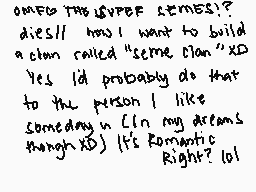 OMFG THE SUPER SEMES!?
dies// now I want to build
a clan called "seme clan" XD
Yes I'd probably do that
to the person I like
someday n (In my dreams
though XD) It's Romantic
Right? lol